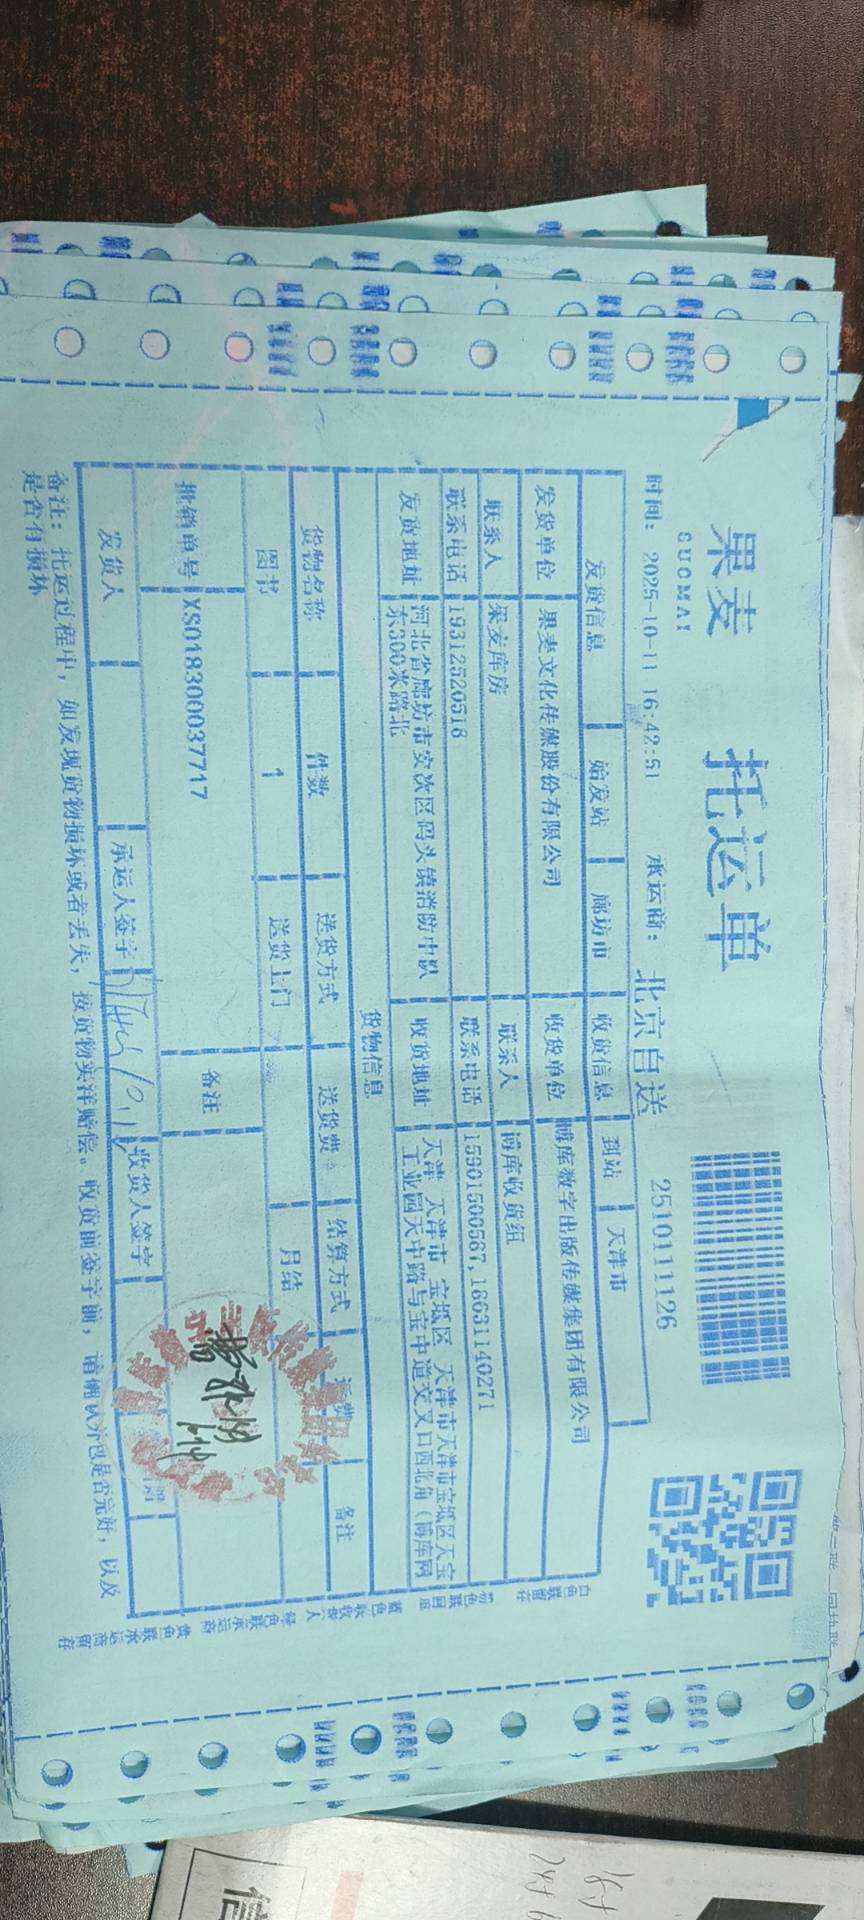 果麦
GUOMAI
托运单
时间： 2025-10-11 16:42:51 承运商： 北京自送 2510111126
发货信息 始发站 廊坊市 收货信息 到站 天津市
发货单位 果麦文化传媒股份有限公司 收货单位 博库数字出版传媒集团有限公司
联系人 果麦库房 联系人 博库收货组
联系电话 19312520518 联系电话 15901500567,16631140271
发货地址 河北省廊坊市安次区码头镇消防中队 收货地址 天津 天津市 宝坻区 天津市天津市宝坻区天宝
东300米路北 工业园天中路与宝中道交叉口西北角（博库网
货物信息
货物名称 件数 送货方式 送货费 结算方式 运费 备注
图书 1 送货上门 月结
批销单号 XS01830037717 备注
发货人 承运人签字 收货人签字
备注：托运过程中，如发现货物损坏或者丢失，按货物实洋赔偿。收货前签字前，请确认外包是否完好，以及
是否有损坏
白色联留存
粉色联回运
蓝色联收货人
绿色联承运商
黄色联承运商留存